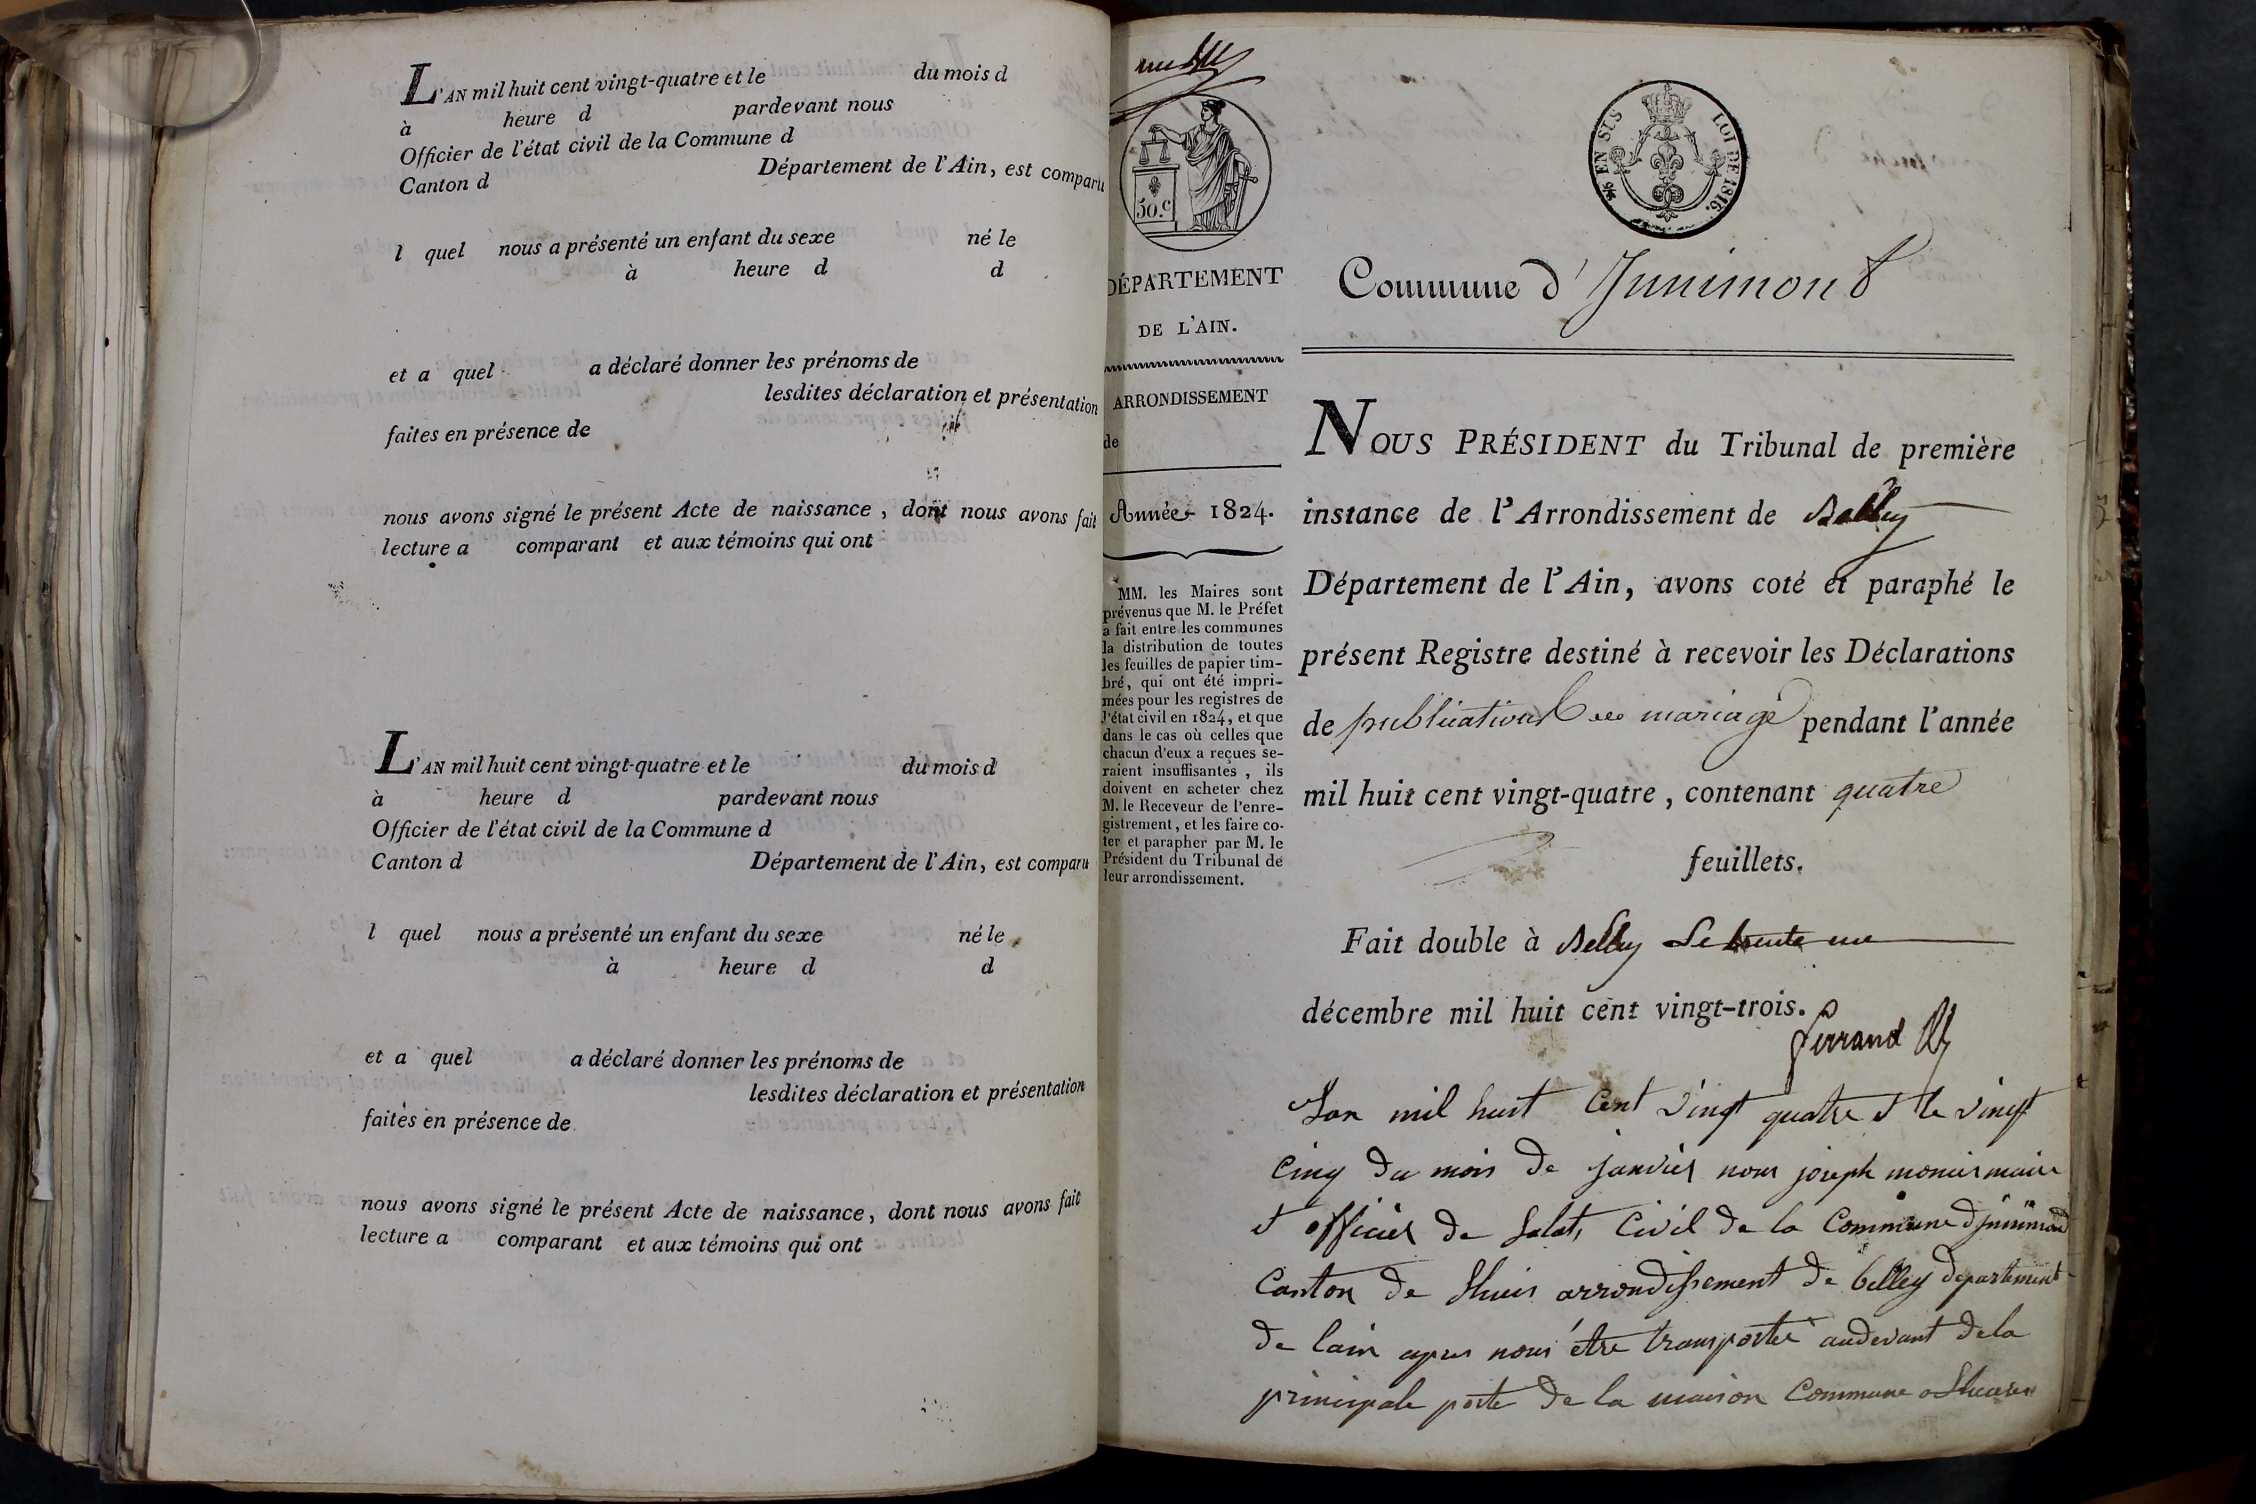 L'AN mil huit cent vingt-quatre et le du mois d
à heure d pardevant nous
Officier de l'état civil de la Commune d
Canton d Département de l'Ain, est comparu
l quel nous a présenté un enfant du sexe né le
à heure d d
et a quel a déclaré donner les prénoms de
lesdites déclaration et présentation
faites en présence de
nous avons signé le présent Acte de naissance, dont nous avons fait
lecture a comparant et aux témoins qui ont
L'AN mil huit cent vingt-quatre et le du mois d
à heure d pardevant nous
Officier de l'état civil de la Commune d
Canton d Département de l'Ain, est comparu
l quel nous a présenté un enfant du sexe né le
à heure d d
et a quel a déclaré donner les prénoms de
lesdites déclaration et présentation
faites en présence de
nous avons signé le présent Acte de naissance, dont nous avons fait
lecture a comparant et aux témoins qui ont
50.c
EN SUS LOI DE 1816.
DÉPARTEMENT
DE L'AIN.
ARRONDISSEMENT
de
Année 1824.
MM. les Maires sont
prévenus que M. le Préfet
a fait entre les communes
la distribution de toutes
les feuilles de papier tim-
bré, qui ont été impri-
mées pour les registres de
l'état civil en 1824, et que
dans le cas où celles que
chacun d'eux a reçues se-
raient insuffisantes, ils
doivent en acheter chez
M. le Receveur de l'enre-
gistrement, et les faire co-
ter et parapher par M. le
Président du Tribunal de
leur arrondissement.
Commune d'Junimond
NOUS PRÉSIDENT du Tribunal de première
instance de l'Arrondissement de Belley
Département de l'Ain, avons coté et paraphé le
présent Registre destiné à recevoir les Déclarations
de publications de mariage pendant l'année
mil huit cent vingt-quatre, contenant quatre
feuillets.
Fait double à Belley le trente un
décembre mil huit cent vingt-trois.
Ferrand
Lan mil huit cent vingt quatre et le vingt
cinq du mois de janvier nous joseph monier maire
et officier de letat civil de la Commune djunimond
Canton de lhuis arrondissement de belley departement
de lain apres nous être transporter audevant de la
principale porte de la maison Commune